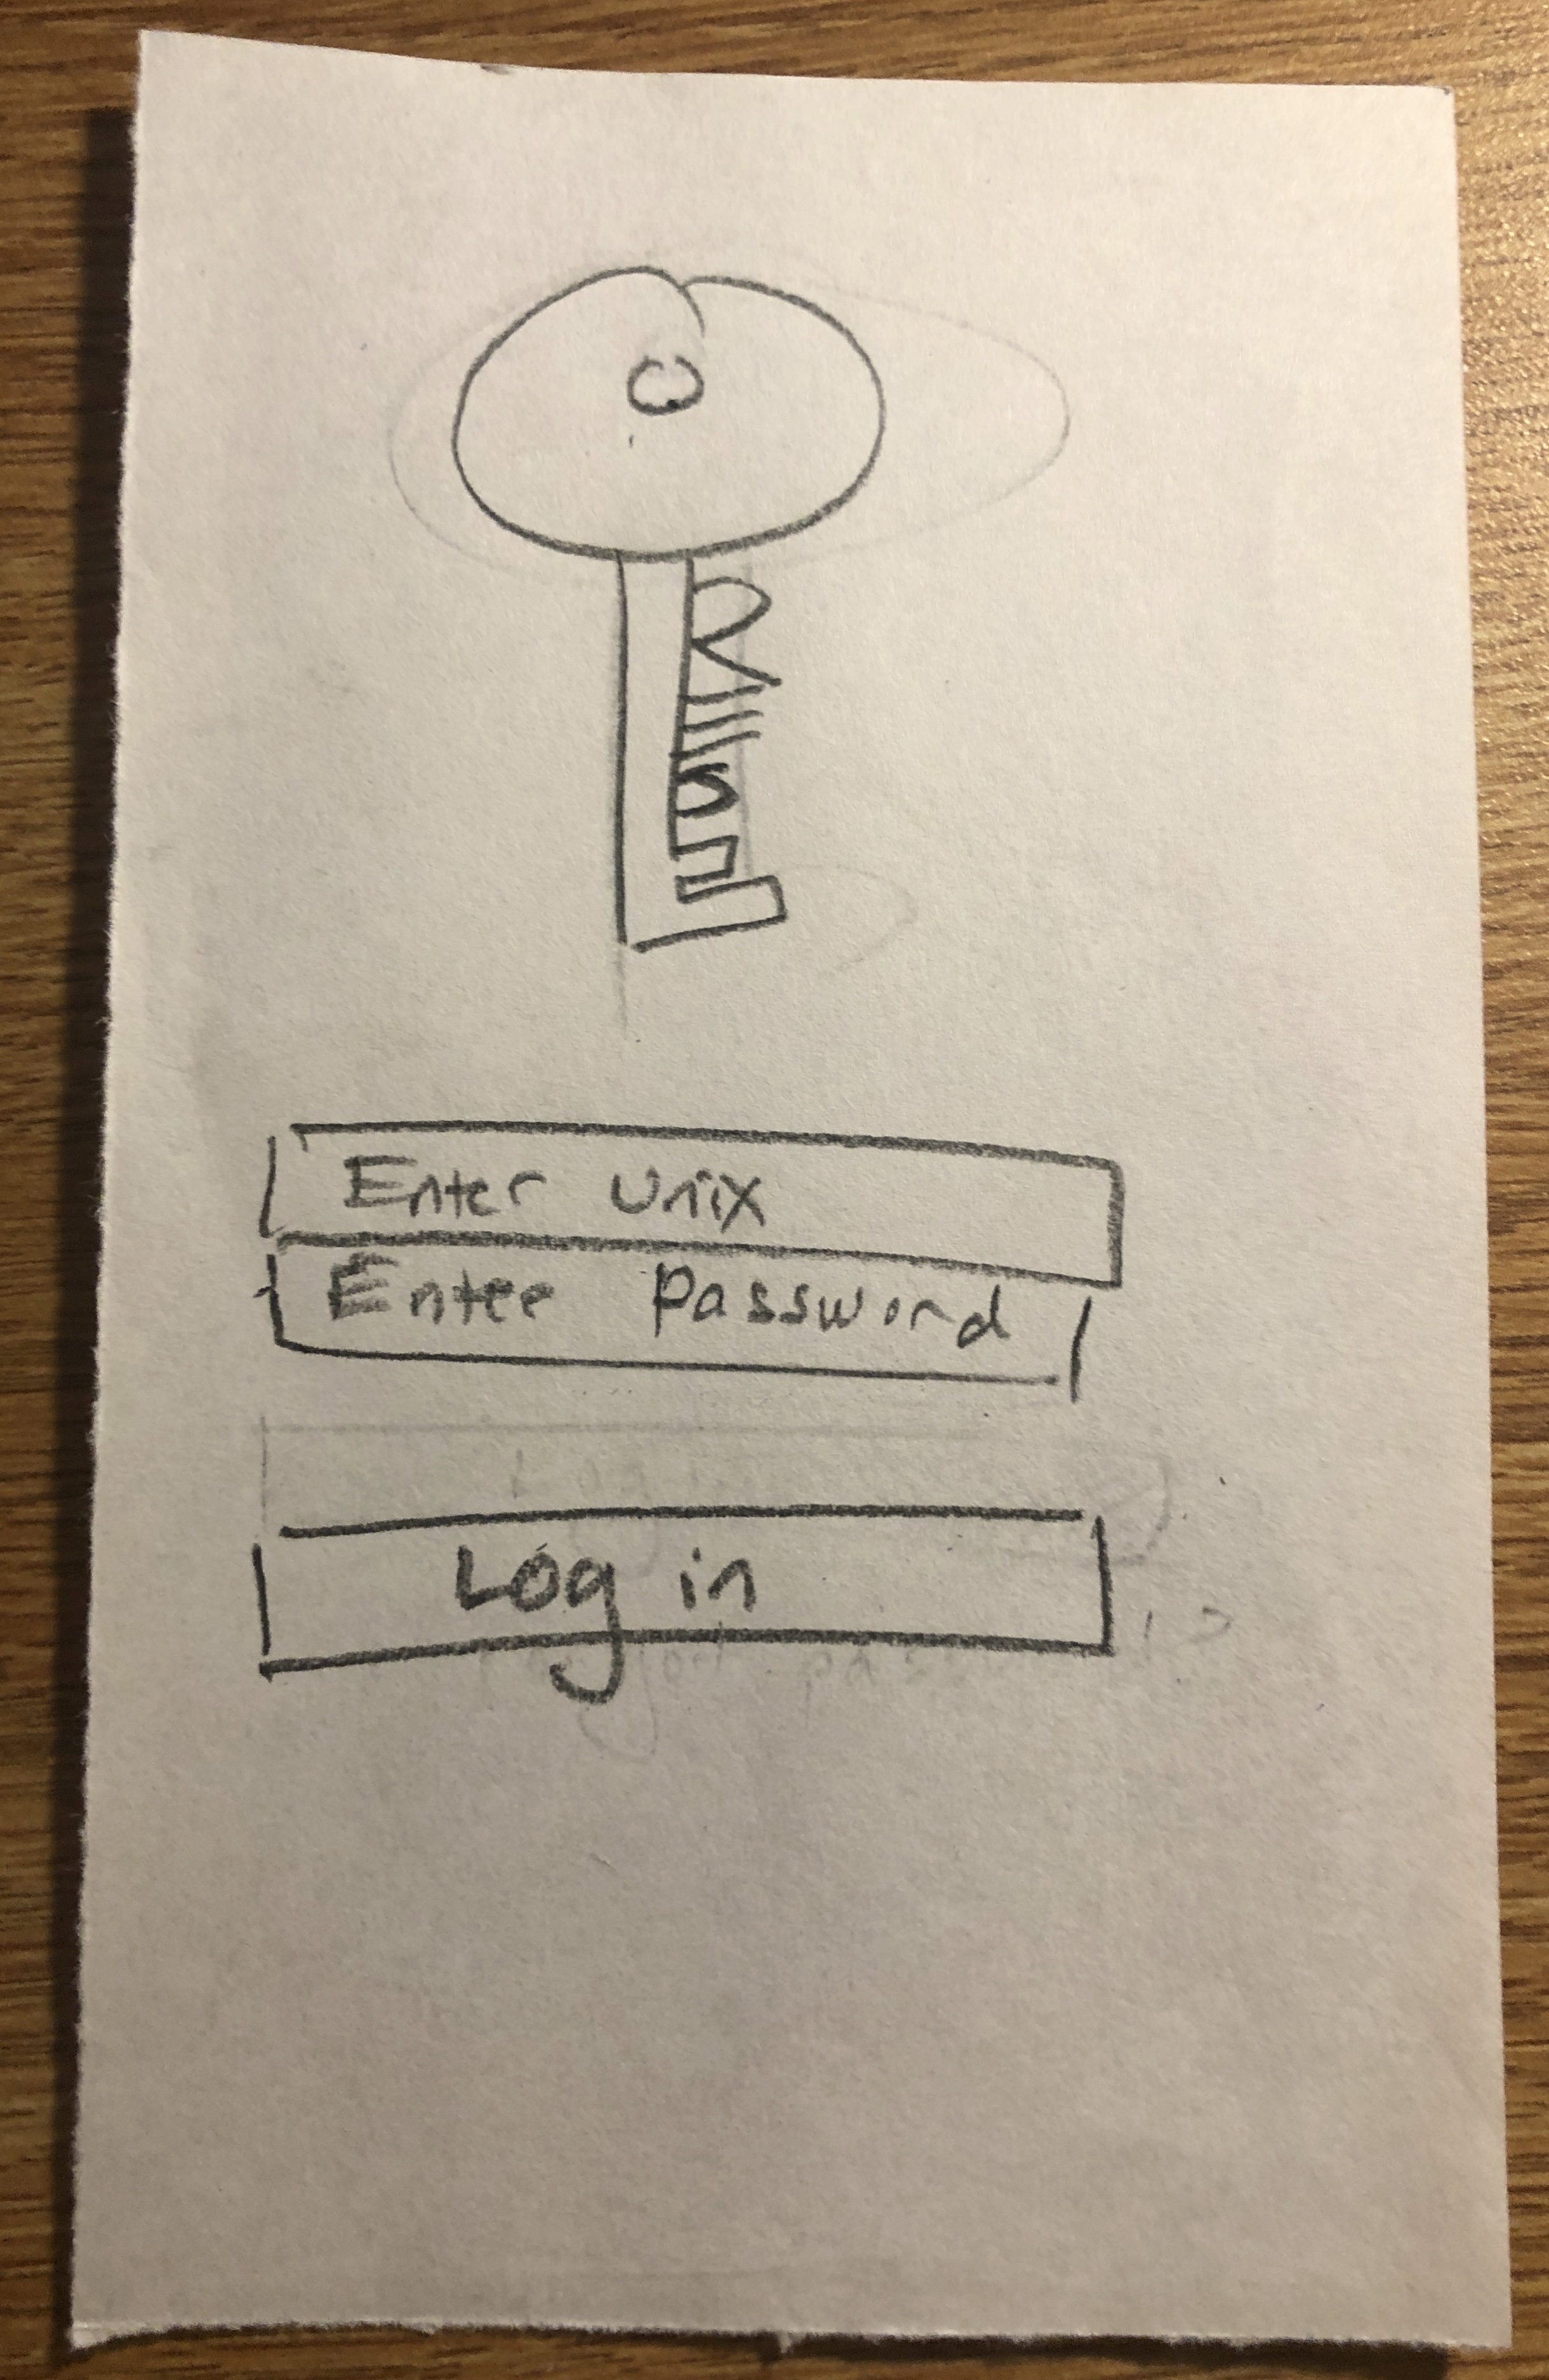 Enter unix
Enter Password
Log in